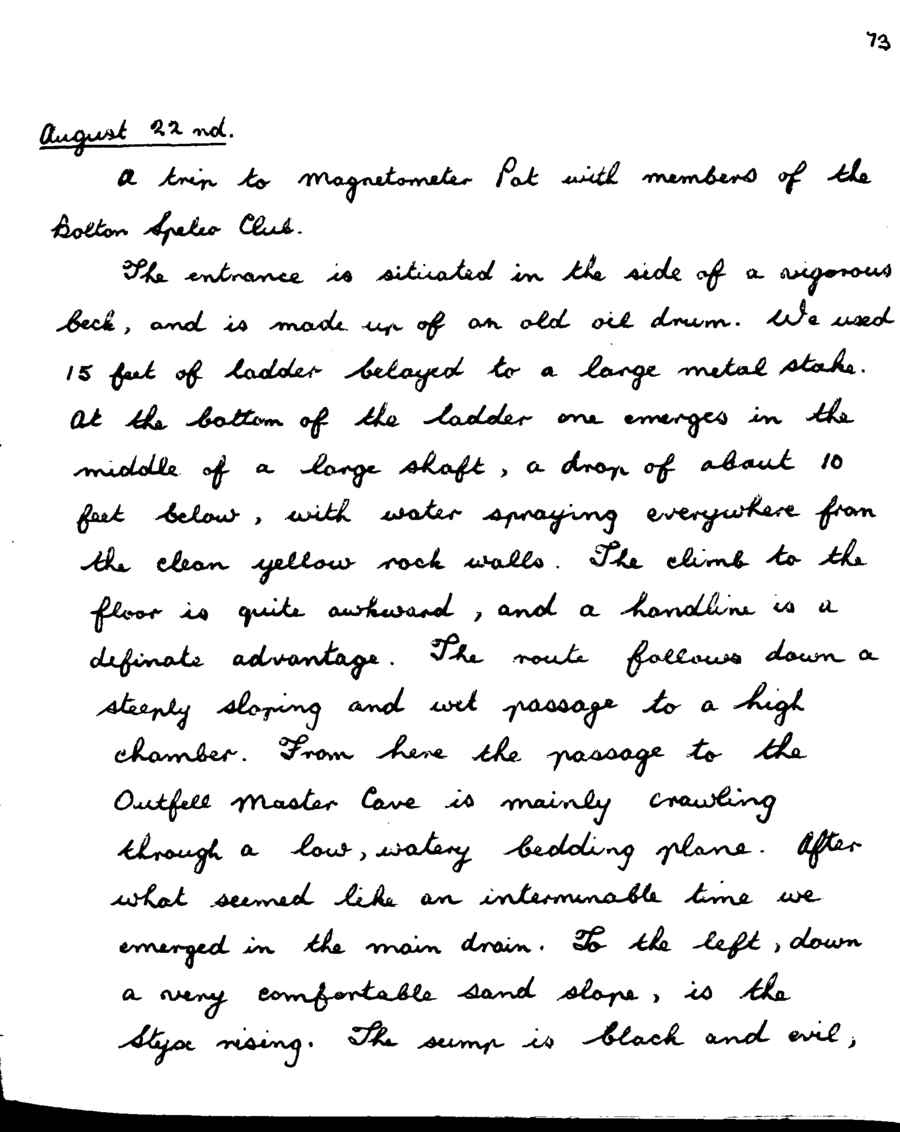 73
August 22nd.
A trip to Magnetometer Pot with members of the
Bolton Speleo Club.
The entrance is situated in the side of a vigorous
beck, and is made up of an old oil drum. We used
15 feet of ladder belayed to a large metal stake.
At the bottom of the ladder one emerges in the
middle of a large shaft, a drop of about 10
feet below, with water spraying everywhere from
the clean yellow rock walls. The climb to the
floor is quite awkward, and a handline is a
definate advantage. The route follows down a
steeply sloping and wet passage to a high
chamber. From here the passage to the
Outfell Master Cave is mainly crawling
through a low, watery bedding plane. After
what seemed like an interminable time we
emerged in the main drain. To the left, down
a very comfortable sand slope, is the
Styx rising. The sump is black and evil,